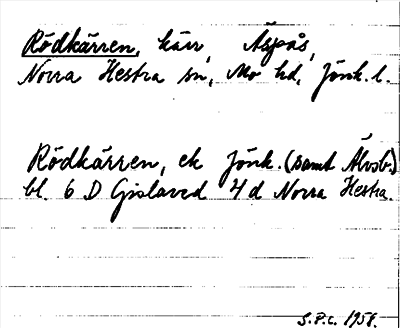 Rödkärren, kärr, Äspås,
Norra Hestra sn, Mo hd, Jönk. l.
Rödkärren, ek Jönk. (samt Älvsb.)
bl. 6 D Gislaved 4 d Norra Hestra.
S.P.C. 1958.